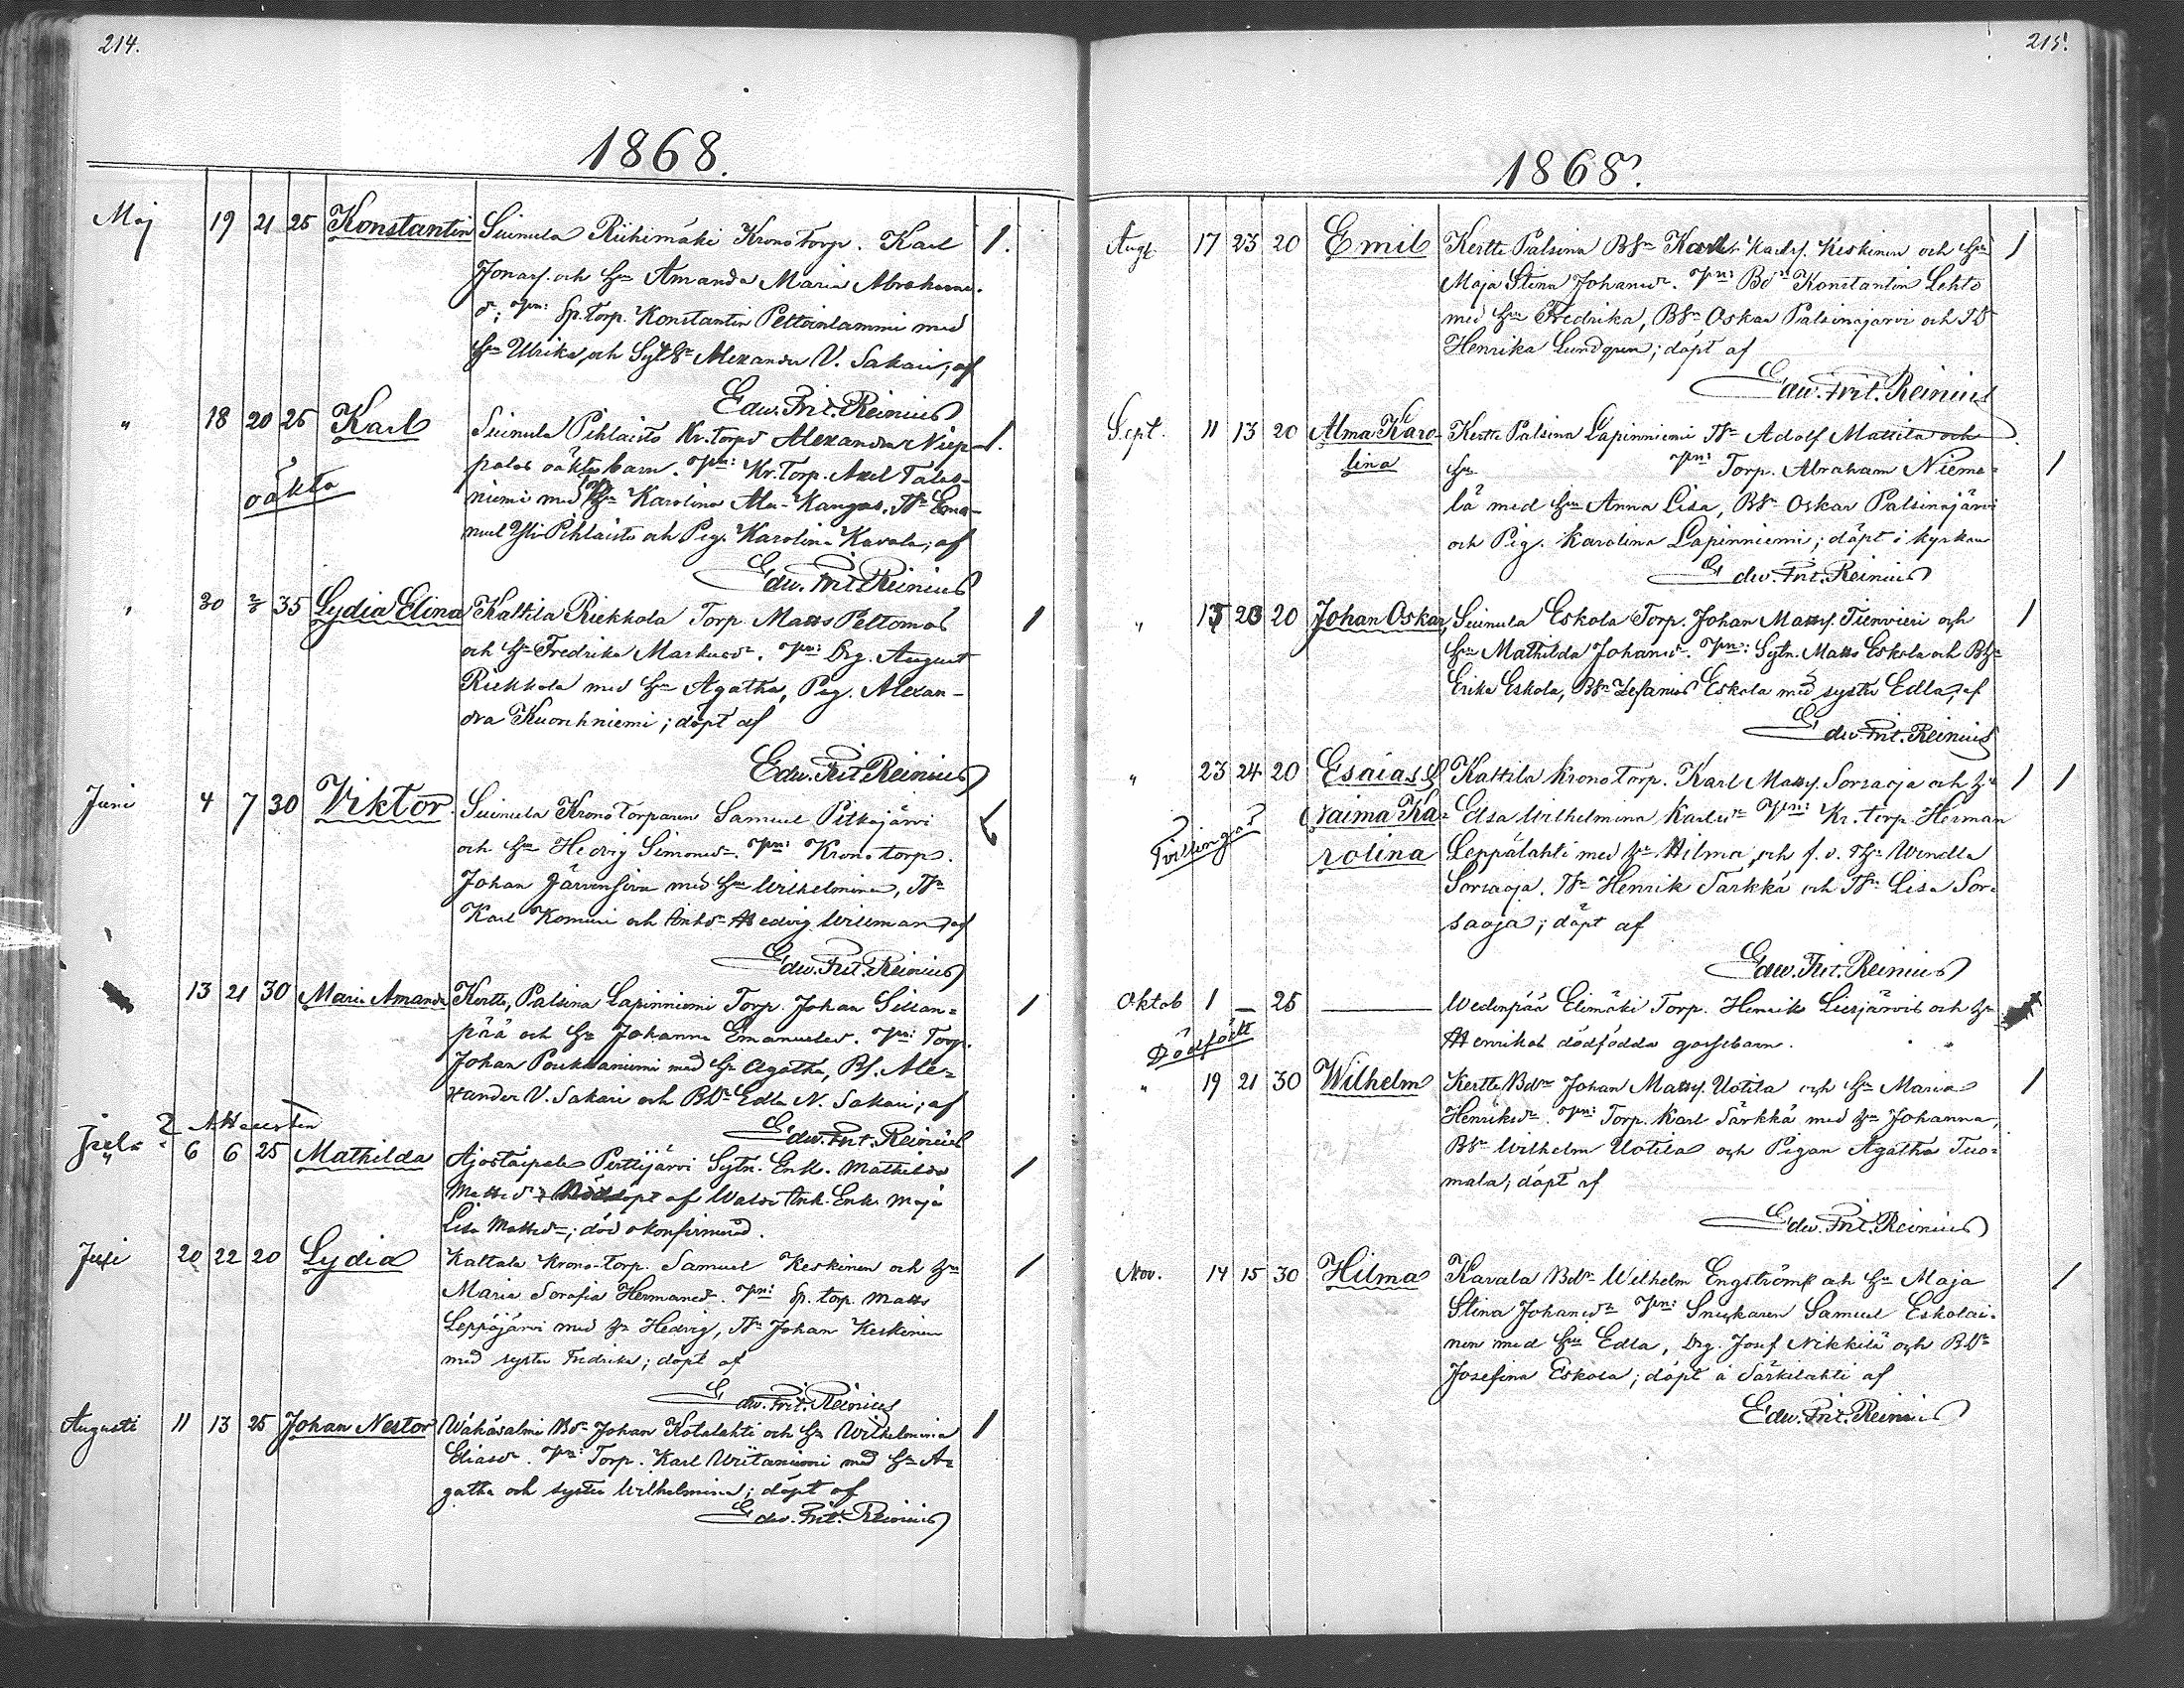 214.
1868.
Maj 19 21 25 Konstantin Suinula Riihimäki Kronotorp. Karl 1.
Jonass. och Hu Amanda Maria Abrahams-
dr; Sp. torp. Konstantin Peltoinlammi med
Hu Ulrika och Alexander V. Sakari; af
Edw. Frit. Reinius
" 18 20 25 Karl Suinula Pihlaisto Kr. torpd Alexandra Niep- 1.
oäkta
palas oäkta barn. Kr. torp. Axel Talas-
niemi med Hu Karolina Ala-Kangas, Ema-
nuel Yli-Pihlaisto och Pig. Karolina Kavala; af
Edw. Frit. Reinius
" 30 35 Lydia Elina Kattila Riekkola Torp. Matts Peltomas 1
och Hu Fredrika Markusdr. Drg. August
Riekkola med Hu Agatha, Pig. Alexan-
dra Kuonhniemi; döpt af
Edw. Frit. Reinius
Juni 4 7 30 Viktor Suinula Kronotorparen Samuel Pitkäjärvi
och Hu Hedvig Simonsdr. Kronotorp.
Johan Järvensivu med Hu Wilhelmina,
Karl Komuri och Hedvig Willman af
Edw. Frit. Reinius
13 21 30 Maria Amanda Kertte, Palsina Lapinniemi Torp. Johan Sillan- 1
pää och Hu Johanna Emanuelsd. Torp.
Johan Poukkaniemi med Hu Agatha, Bs. Ale-
xander V. Sakari och Bdr Edla N. Sakari; af
Edw. Frit. Reinius
6 6 25 Mathilda Ajostaipale Perttijärvi Sytn. Enk. Mathilda 1
Mattsdr Nöddöpt af Enk. Maja
Lisa Mattsdr; död okonfirmerad.
Juli 20 22 20 Lydia Kallala Krono-torp. Samuel Keskinen och Hu 1
Maria Sorafia Hermansd. Sp. torp. Matts
Leppäjärvi med Hu Hedvig, Johan Keskinen
med syster Fredrika; döpt af
Edw. Frit. Reinius
Augusti 11 13 25 Johan Nestor Wähäsalmi Johan Kotalahti och Hu Wilhelmina 1
Eliasdr. Torp. Karl Wiitaniemi med Hu A-
gatha och syster Wilhelmina; döpt af
Edw. Frit. Reinius
215.
1868.
Aug. 17 23 20 Emil Kertte Palsina Karl Karls. Keskinen och Hu 1
Maja Stina Johansdr. Konstantin Lehto
med Hu Fredrika, Oskar Palsinajärvi och
Henrika Lundqren; döpt af
Edw. Frit. Reinius
Sept. 11 13 20 Alma Karo- Kertte Palsina Lapinniemi Adolf Mattila och
lina Hu Torp. Abraham Nieme- 1
lä med Hu Anna Lisa, Oskar Palsinajärvi
och Pig. Karolina Lapinniemi; döpt i kyrkan
Edw. Frit. Reinius
" 15 20 20 Johan Oskar Suinula Eskola Torp. Johan Matts. Tienvieri och 1
Hu Mathilda Johansdr. Sytn. Matts Eskola och
Erika Eskola, Zefanias Eskola med syster Edla; af
Edw. Frit. Reinius
" 23 24 20 Esaias & Kattila Kronotorp. Karl Matts. Sorsaoja och Hu 1 1
Tvillingar
Naima Ka- Elsa Wilhelmina Karlsdr Kr. torp. Herman
rolina Leppälahti med Hu Hilma, och f. d. Wendla
Sorsaoja. Henrik Särkkä och Lisa Sor-
saoja; döpt af
Edw. Frit. Reinius
Oktob 1 — 25 — Wedenpää Elimäki Torp. Henrik Liesjärvis och Hu
Dödfödt
Henrikas dödfödda gossebarn.
" 19 21 30 Wilhelm Kertte Johan Matts. Uotila och Hu Maria 1
Henriksdr. Torp. Karl Särkkä med Hu Johanna,
Wilhelm Uotila och Pigan Agatha Tuo-
mala; döpt af
Edw. Frit. Reinius
Nov. 14 15 30 Hilma Kavala Wilhelm Engström och Hu Maja 1
Stina Johansdr Snickaren Samuel Eskolai-
nen med Hu Edla, Drg. Josef Nikkilä och
Josefina Eskola; döpt å Särkilahti af
Edw. Frit. Reinius